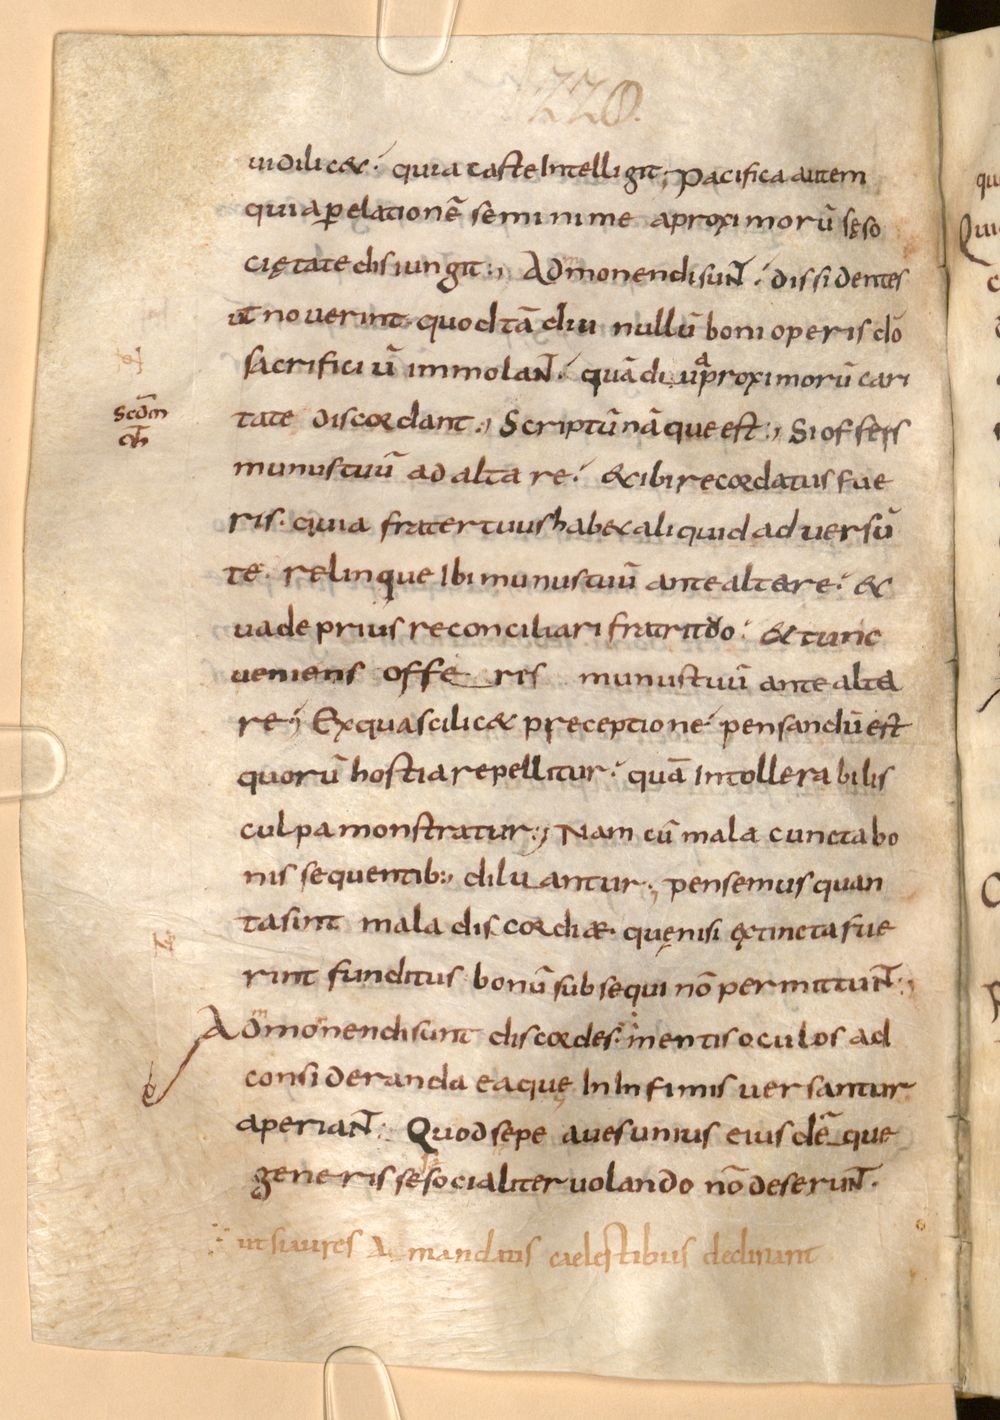 220.
uidilic&. quia caste Intelligit; Pacifica autem
qui aꝑ elationē semi ni me aproximorū sęso
cię tate disiungit:, Admonendi suNt. dissidentes
ut noverint quod tā diu nullū boni operis dō
sacrifici ū immolaNt. quādi u aproximorū cari
tate discordant., Scriptū nā que est:, Si offers
munus tuū ad alta re. & ibi recordatus fue
ris. quia frater tuus hab& aliquid ad uersū
te. relinque Ibi munus tuū ante altare. &
uade prius reconciliari fratri tuo. & tunc
ueniens offe ris munus tuū ante alta
re; Ex qua scilic& preceptione pensandū est
quorū hostia repellitur. quā Intollerabilis
culpa monstratur:, Nam cū mala cuncta bo
nis sequentib; diluantur; pensemus quan
ta sint mala discordiæ. quę nisi extincta fue
rint funditus bonū subsequi nō permittuNt;
Admonendi sunt discordes. mentis oculos ad
consideranda ea quę In Infimis uersantur
aperiaNt. Quod sepe aues unius eiusdē que
generis sese socialiter uolando nō deseruNt.
ut si aures a mandatis caelestibus declinant